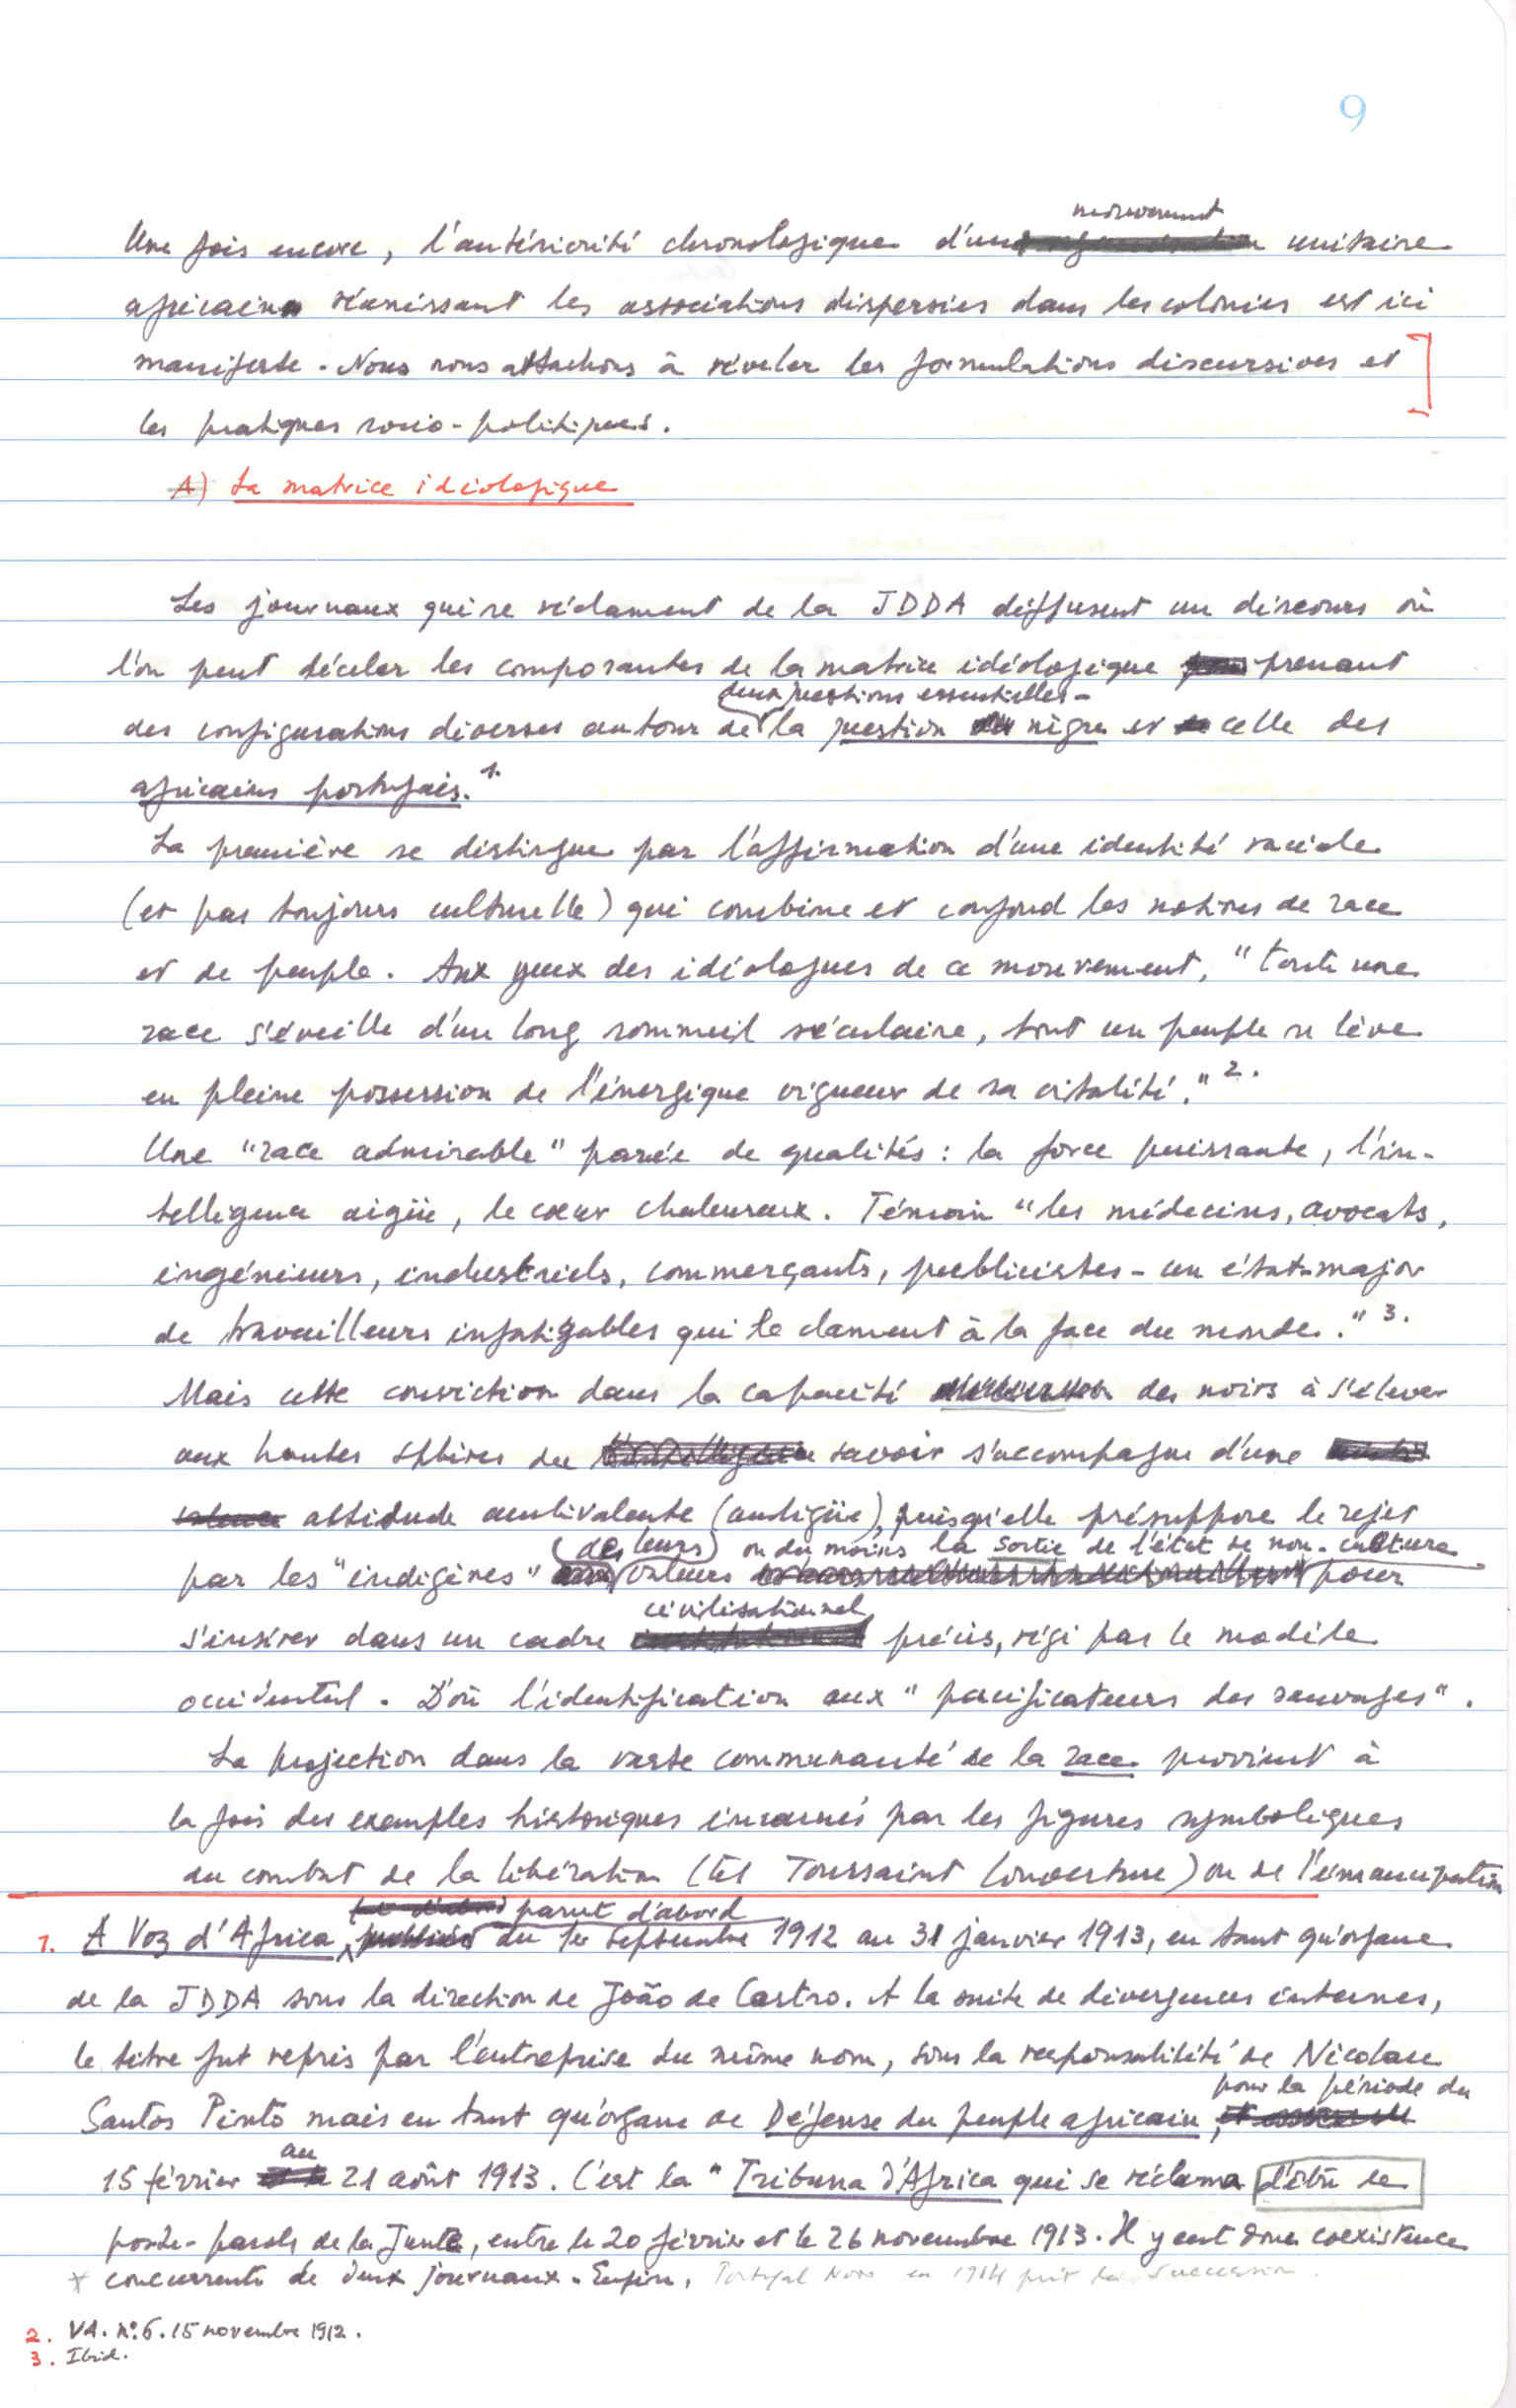 9
mouvement
Une fois encore, l'antériorité chronologique d'un unitaire
africain réunissant les associations dispersées dans les colonies est ici
manifeste. Nous nous attachons à révéler les formulations discursives et
les pratiques socio-politiques.
A) La matrice idéologique
Les journaux qui se réclament de la JDDA diffusent un discours où
l'on peut déceler les composantes de la matrice idéologique prenant
deux questions essentielles -
des configurations diverses autour de la question nègre et celle des
africains portugais. 1.
La première se distingue par l'affirmation d'une identité raciale
(et pas toujours culturelle) qui combine et confond les notions de race
et de peuple. Aux yeux des idéologues de ce mouvement, "toute une
race s'éveille d'un long sommeil séculaire, tout un peuple se lève
en pleine possession de l'énergique vigueur de sa vitalité." 2.
Une "race admirable" parée de qualités : la force puissante, l'in-
telligence aigüe, le cœur chaleureux. Témoin "les médecins, avocats,
ingénieurs, industriels, commerçants, publicistes - un état-major
de travailleurs infatigables qui le clament à la face du monde." 3.
Mais cette conviction dans la capacité des noirs à s'élever
aux hautes sphères du savoir s'accompagne d'une
attitude ambivalente (ambigüe), puisqu'elle présuppose le rejet
(des leurs) ou du moins la sortie de l'état de non-culture
par les "indigènes" valeurs pour
civilisationnel
s'insérer dans un cadre précis, régi par le modèle
occidental. D'où l'identification aux "pacificateurs des sauvages".
La projection dans la vaste communauté de la race provient à
la fois des exemples historiques incarnés par les figures symboliques
du combat de la libération (tel Toussaint Louverture) ou de l'émancipation
parut d'abord
1. A Voz d'Africa, du 1er septembre 1912 au 31 janvier 1913, en tant qu'organe
de la JDDA sous la direction de João de Castro. A la suite de divergences internes,
le titre fut repris par l'entreprise du même nom, sous la responsabilité de Nicolau
pour la période du
Santos Pinto mais en tant qu'organe de Défense du peuple africain,
au
15 février 21 août 1913. C'est la "Tribuna d'Africa qui se réclama d'être le
porte-parole de la Junta, entre le 20 février et le 26 novembre 1913. Il y eut donc coexistence
* concurrente de deux journaux. Enfin, Portugal Novo en 1914 prit la succession.
2. VA. nº.6. 15 novembre 1912.
3. Ibid.